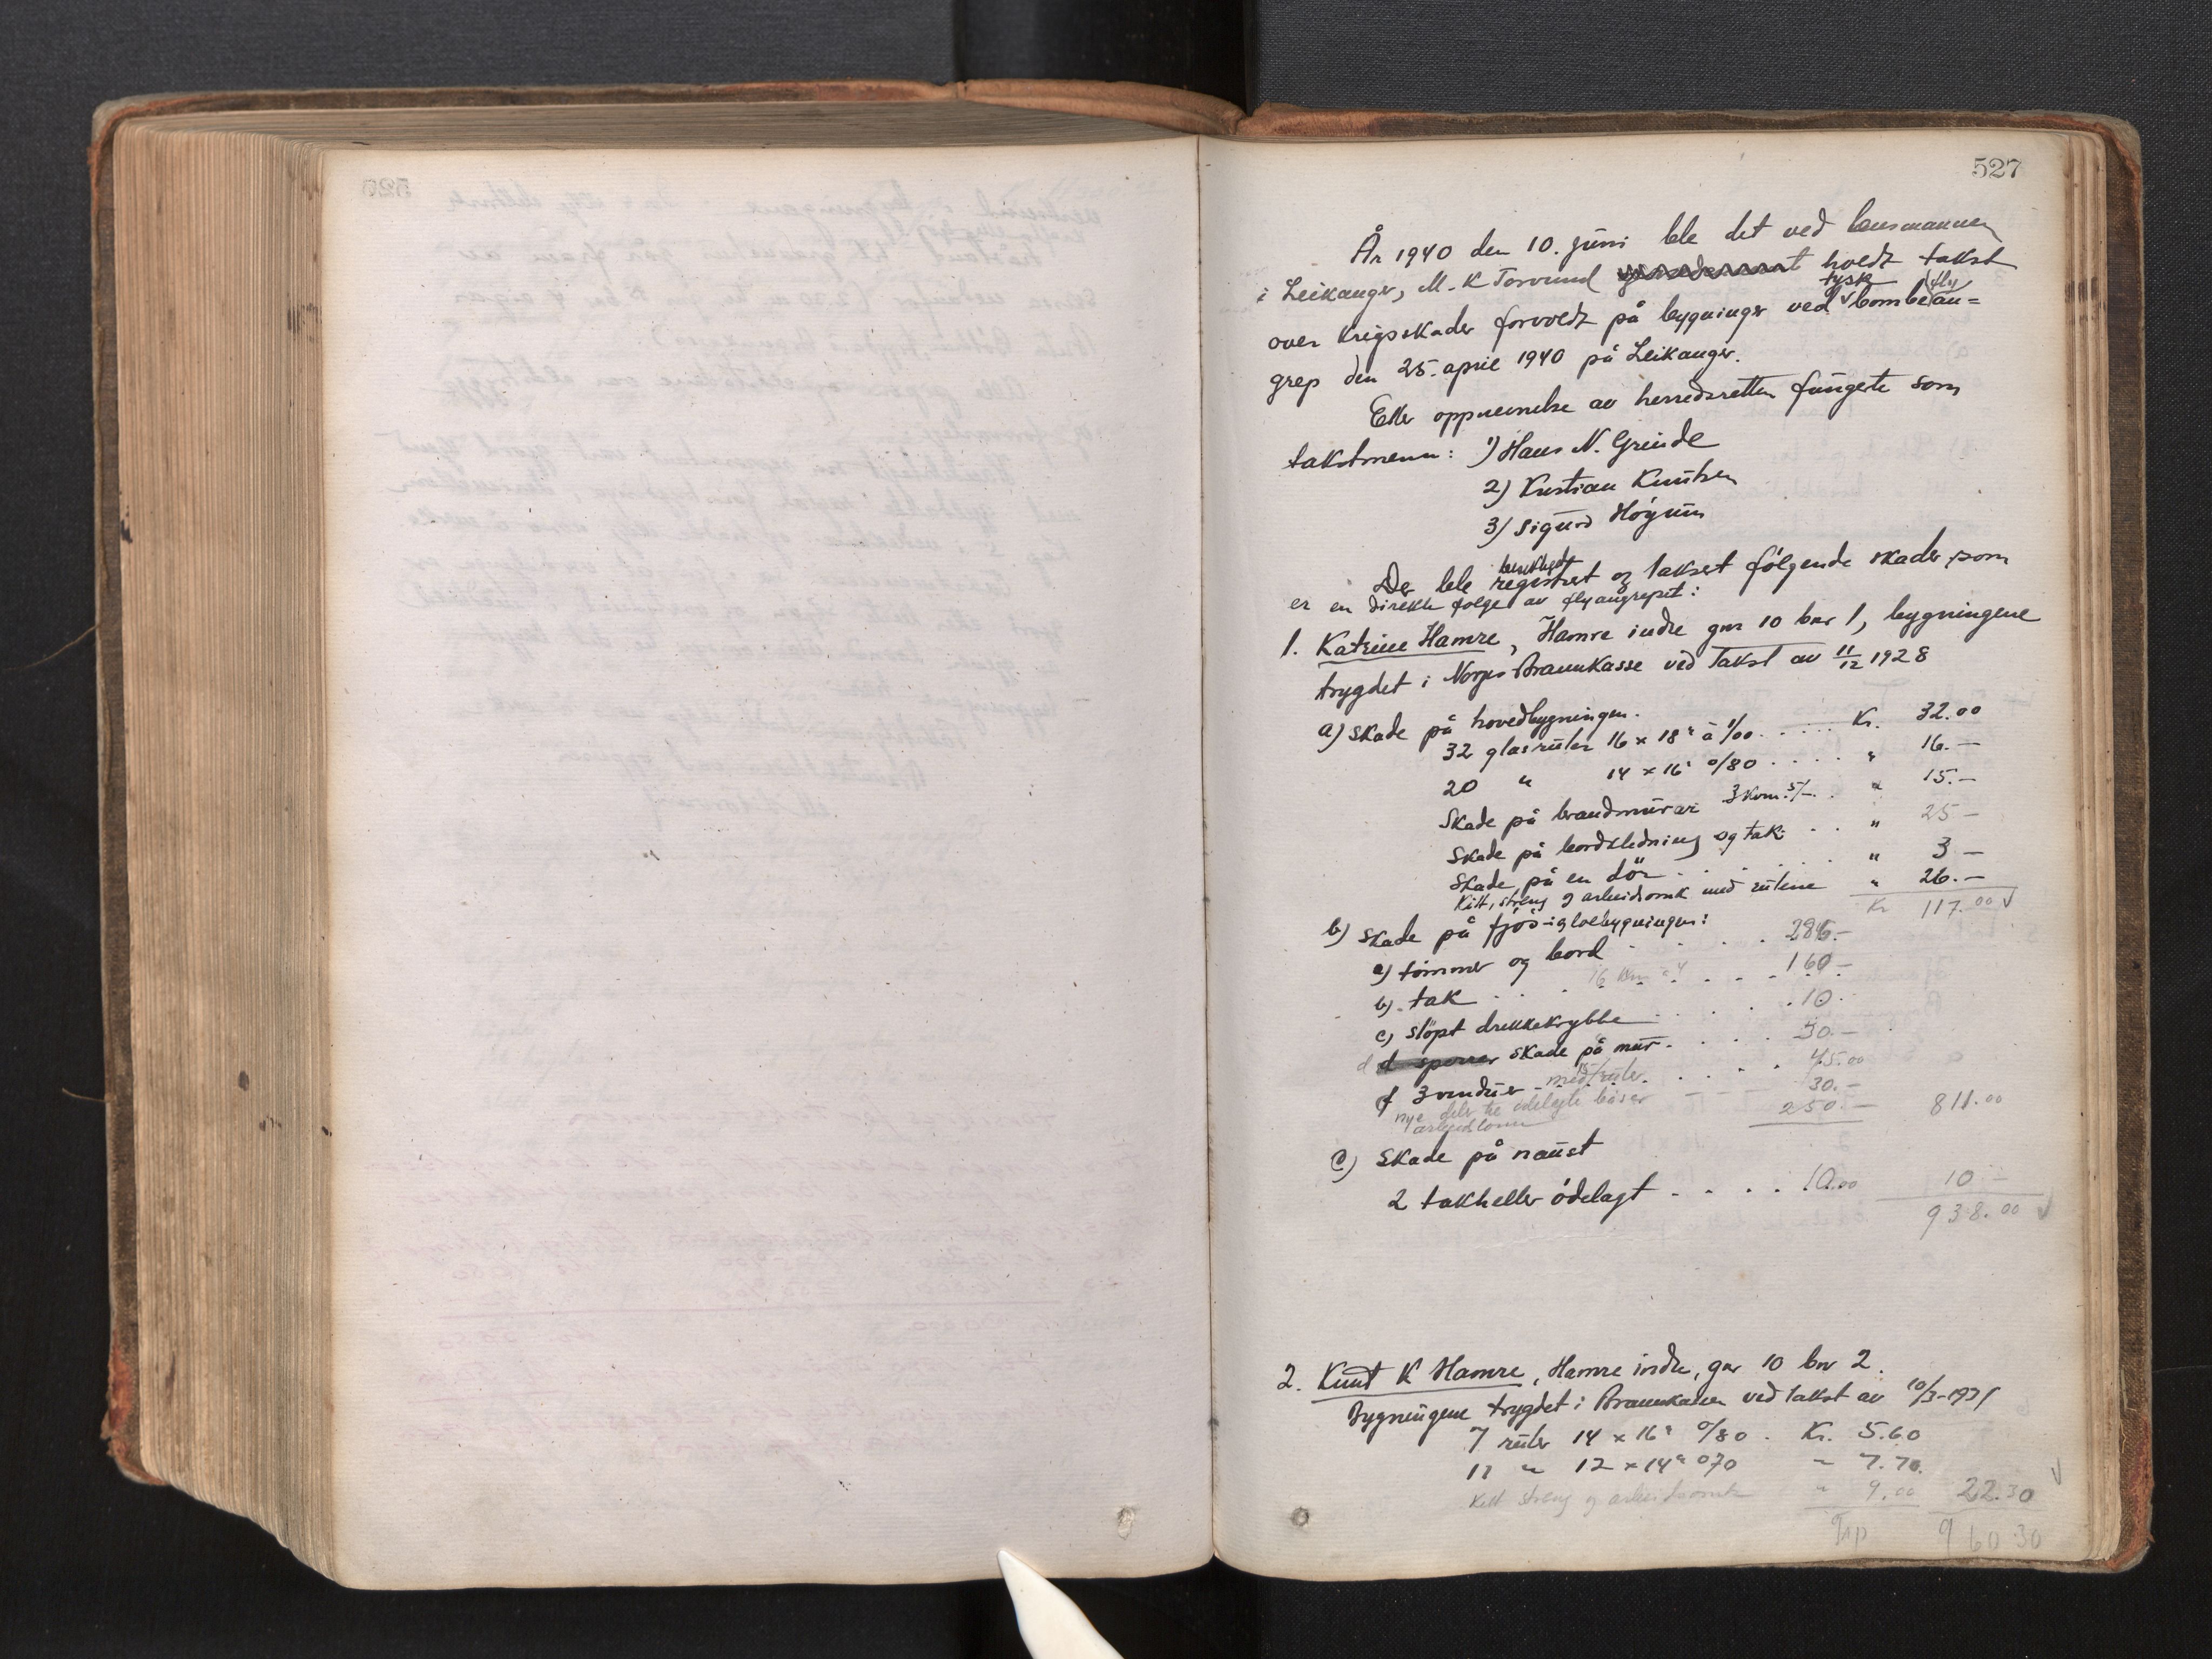 527
År 1940 den 10. juni ble det ved lensmannen
i Leikanger, M. K Torvund holdt takst
over krigsskader forvoldt på bygninger ved tysk bombe(fly)an=
grep den 25. april 1940 på Leikanger.
Etter oppnevnelse av herredsretten fungerte som
takstmenn: 1) Hans N. Grinde
2) Kristian Knutsen
3) Sigurd Høyum
Der ble besiktiget registret og taksert følgende skader, som
er en direkte følge av flyangrepet:
1. Katrine Hamre, Hamre indre gnr 10 bnr 1, bygningene
trygdet i Norges Brannkasse ved takst av 11/12 1928
a) Skade på hovedbygningen.
32 glasruter 16 x 18" à 1/00 . . . . . Kr. 32.00
20 " 14 x 16" 0/80 . . . . " 16.—
Skade på brandmurar 3 kvm. 5/— . . " 15.—
Skade på bordkledning og tak . . " 25 —
Skade på en dör . . . . . " 3 —
Kitt, streng og arbeidsomk med rutene " 26.—
Kr 117.00
b) Skade på fjös- og løebygningen:
a) tömmer og bord . . . . 286.—
b) tak . . . 16 kvm à 4 . . . 160 —
c) stöpt drikkekrybbe . . . . 10.
d skade på mur . . . . 30.—
f 3 vinduer med ruter 15/ . . . . 45.00
nye deler til ödelagte båser — — 30.—
arbeidslönn 250.— 811.00
c) Skade på naust
2 takheller ödelagt . . . . 10.00 10 —
938.00
2. Knut K Hamre, Hamre indre, gnr 10 bnr 2.
Bygningene trygdet i Brannkassen ved takst av 10/3-1931
7 ruter 14 x 16" 0/80 . Kr. 5.60
11 " 12 x 14" 070 " 7.70.
Kitt streng og arbeidsomk " 9.00 22.30
Trsp 960.30